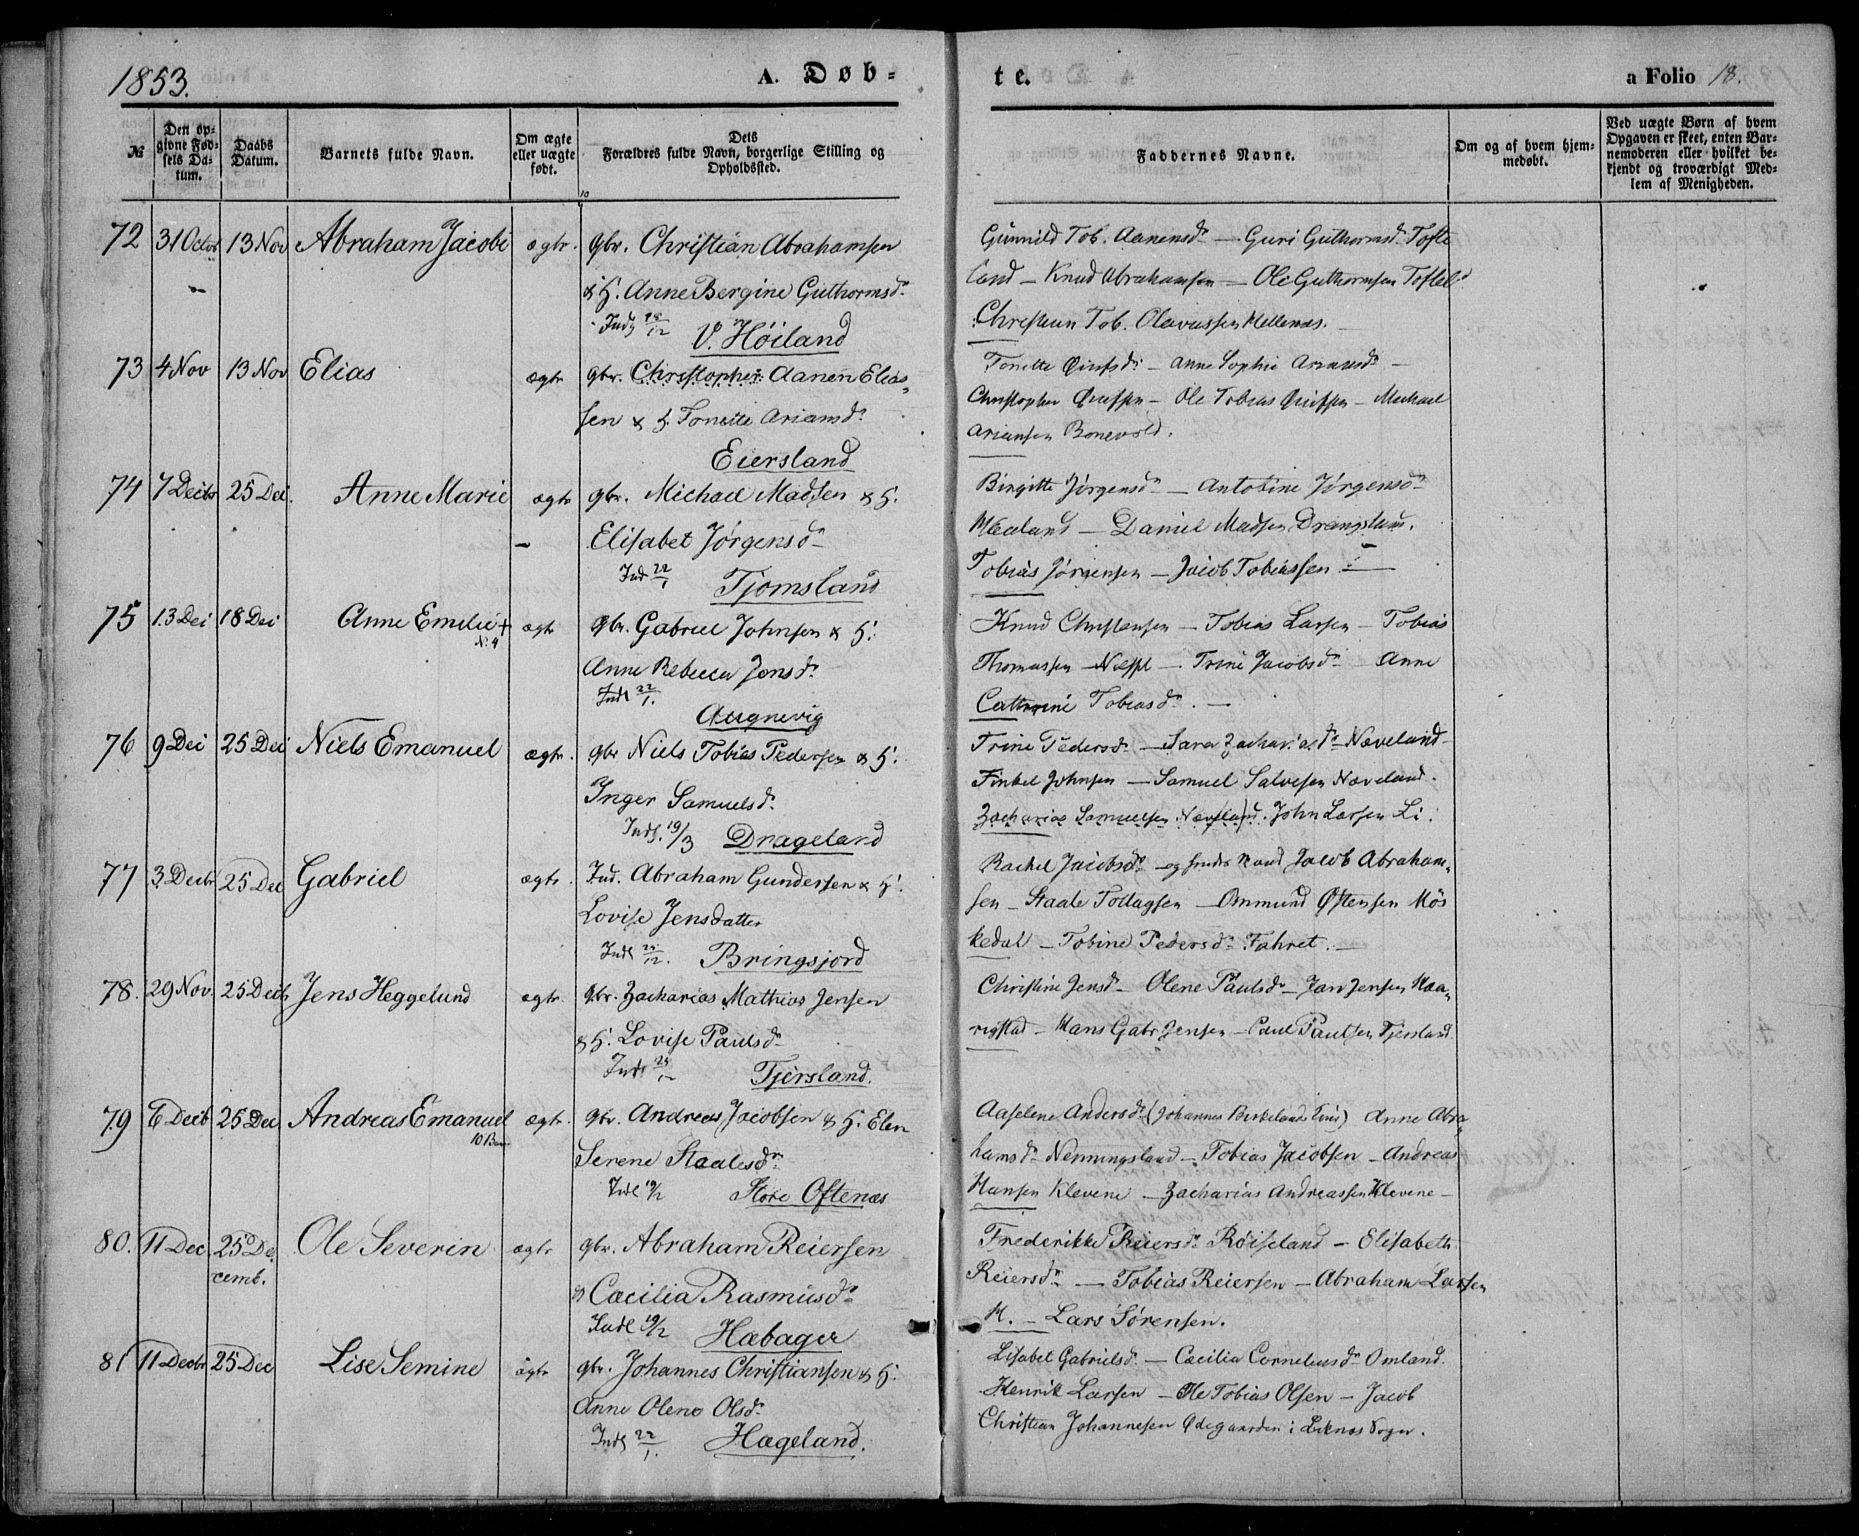 1853.
A. Døb-
te.
a Folio 18.
№
Den opgivne Fødsels Datum.
Daabs Datum.
Barnets fulde Navn.
Om ægte eller uægte født.
Dets Forældres fulde Navn, borgerlige Stilling og Opholdssted.
Faddernes Navne.
Om og af hvem hjemmedøbt.
Ved uægte Børn af hvem Opgaven er skeet, enten Barnemoderen eller hvilket bekjendt og troværdigt Medlem af Menigheden.
72 31 Octob 13 Nov Abraham Jacobi ægtr. gbr. Christian Abrahamsen
& H. Anne Bergine Guthormsdr
V. Høiland
Gunnild Tob. Aanensdr — Guri Guthormsdr Tofte
land — Knud Abrahamsen — Ole Guthormsen Toftel
Christian Tob. Olavussen Hellenæs.
73 4 Nov 13 Nov Elias ægtr gbr. Christopher Aanen Elias-
sen & H. Tonette Ariansdr
Eiersland
Tonette — Anne Sophie
Christopher — Ole Tobias — Michael
Ariansen Bonevold.
74 7 Decbr 25 Dec. Anne Marie ægtr gbr. Michael Madsen & H.
Elisabet Jørgensd
Ind 22/1 Tjomsland
Birgitte Jørgensdr — Antobine Jørgensd
Mæland — Daniel Madsen
Tobias Jørgensen — Jacob Tobiassen
75 13 Dec 18 Dec Anne Emilie + ægtr gbr. Gabriel Johnsen & H.
No 4
Anne Rebecca Jonsdr
Indl 22/1.
Augnevig
Knud Christensen — Tobias Larsen — Tobias
Thomassen — Trine Jacobsdr — Anne
Cathrine Tobiasdr.
76 9 Dec 25 Dec Niels Emanuel ægtr. gbr Niels Tobias Pedersen & H.
Inger Samuelsdr
Indl. 19/3 Drageland
Trine Pedersdr — Sara Zachariasdr Næveland
Finkel Johnsen — Samuel Salvesen Næveland.
Zacharias Samuelsen Næveland. John Larsen Li.
77 3 Decbr 25 Dec Gabriel ægtr. Ind. Abraham Gundersen & H.
Lovise Jensdatter
Bringsjord
Rachel Jacobsdr — Jacob Abraham-
sen — Staale Tollagsen — Ommund Østensen Mös
kedal — Tobine Pedersdr Fahret.
78. 29 Nov. 25 Decbr Jens Heggelund ægtr. gbr. Zacharias Mathias Jensen
& H. Lovise Paulsdr
Tjersland.
Christine Jensdr — Olene Paulsdr — Jan Jensen Haa-
rigstad — Hans Gabr Jensen — Paul Paulsen Tjersland
79 6 Decb 25 Dec Andreas Emanuel ægtr. gbr. Andreas Jacobsen & H. Elen
10 Barn
Serene Staalesdr
Indl 19/2 Store Oftenæs
Aaselene Andersdr (Johannes Birkelands ) Anne Abra-
hamsdr Nenningsland — Tobias Jacobsen — Andreas
Hansen Klevene — Zacharias Andreassen Klevene —
80. 11 Dec 25 De- Ole Severin ægtr gbr. Abraham Reiersen
cemb.
& Cæcilia Rasmusdr
Indl 19/2 Hæbager
Frederikke Reiersdr Röiseland — Elisabeth
Reiersdr — Tobias Reiersen — Abraham Larsen
H. — Lars Sørensen.
81 11 Decbr 25 Dec Lise Semine ægtr gbr. Johannes Christiansen & H.
Anne Olene Olsdr
Indl 22/1. Hægeland.
Lisabet Gabrielsdr — Cæcilia Corneliusdr Omland.
Henrik Larsen — Ole Tobias Olsen — Jacob
Christian Johannesen Ødegaarden i Liknes Sogn.